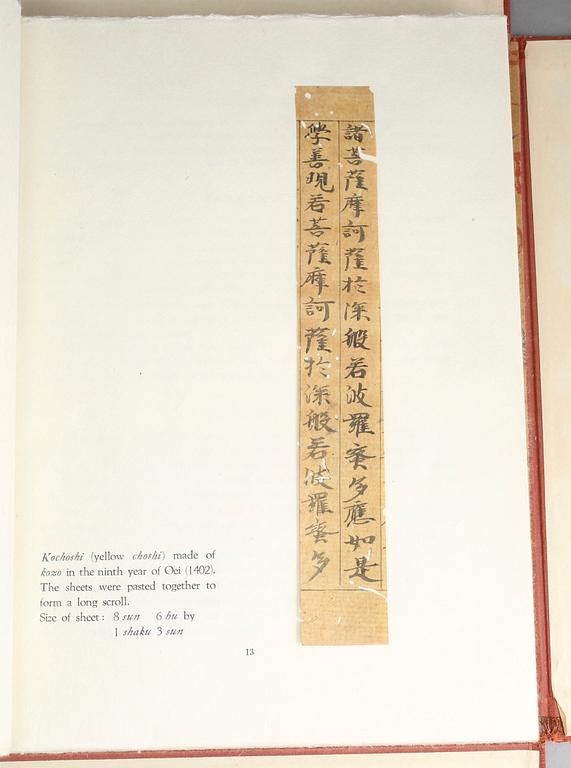 諸菩薩摩訶薩於深般若波羅蜜多應如是
學善現若菩薩摩訶薩於深般若波羅蜜多
Kochoshi (yellow choshi) made of
kozo in the ninth year of Oei (1402).
The sheets were pasted together to
form a long scroll.
Size of sheet: 8 sun 6 bu by
1 shaku 3 sun
13